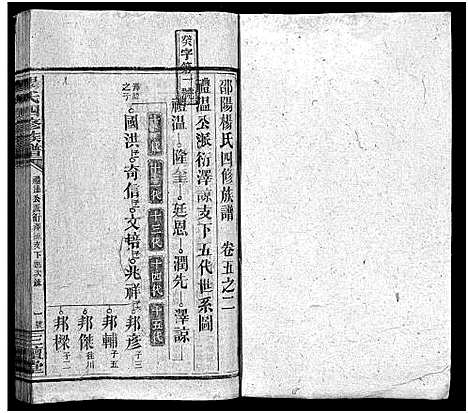 癸字第一號
邵陽楊氏四修族譜 卷五之二
禮溫公派衍澤諒支下五代世系圖
禮溫 隆奎 廷恩 潤先 澤諒
十一代 十二代 十三代 十四代 十五代
之子
國洪 奇信 文韜 兆祥
邦彥 子三
邦輔 子五
邦傑 往川
邦樑 子二
楊氏四修族譜
三讀堂